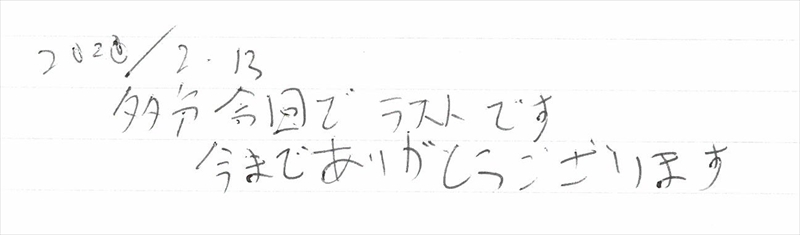 2020/2.13
多分今回でラストです
今までありがとうございます